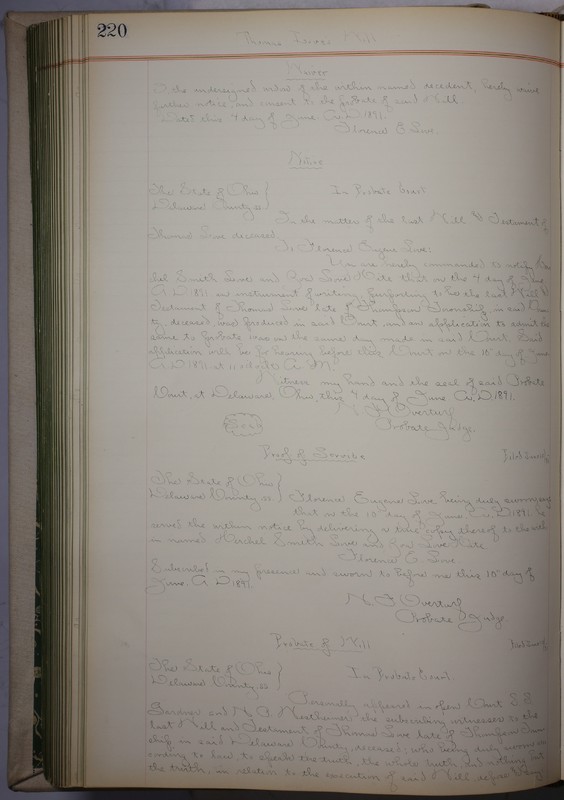 220
Thomas Love's Will
Waiver
I, the undersigned widow of the within named decedent, hereby waive
further notice and consent to the probate of said Will.
Dated this 4 day of June A.D. 1891.
Florence E. Love.
Notice
The State of Ohio }
Delaware County ss } In Probate Court
In the matter of the last Will & Testament of
Thomas Love deceased.
To Florence Eugene Love:
You are hereby commanded to notify
Smith Love and Love Kate that on the 4 day of June
A.D 1891 an instrument of writing, purporting to be the last Will &
Testament of Thomas Love late of Thompson Township in said
ty, deceased, was produced in said Court, and an application to admit the
same to probate was on the same day made in said Court. Said
application will be for hearing before this Court on the 10" day of June
A.D 1891 at o'clock A.M.
Witness my hand and the seal of said Probate
Court, at Delaware, Ohio, this 4 day of June A.D 1891.
F Overturf
Seal Probate Judge.
Proof of Service
The State of Ohio }
Delaware County ss. } Florence Eugene Love being duly sworn says
that on the 10" day of June A.D. 1891 he
served the within notice by delivering a true copy thereof to the with
in named Smith Love and Love Kate
Florence E. Love
Subscribed in my presence and sworn to before me this 10" day of
June A.D 1891.
N. F Overturf
Probate Judge
Probate of Will
The State of Ohio }
Delaware County ss } In Probate Court
Personally appeared in open Court S.S.
and the subscribing witnesses to the
last Will and Testament of Thomas Love late of Thompson Town
ship in said Delaware County, deceased, who being duly sworn
according to law to speak the truth, the whole truth and nothing but
the truth, in relation to the execution of said Will depose &